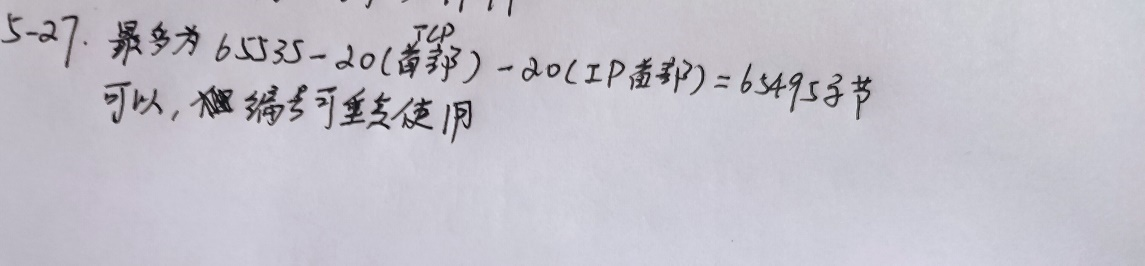 5-27. 最多为 65535-20(TCP首部)-20(IP首部)=65495字节
可以, 编号可重复使用